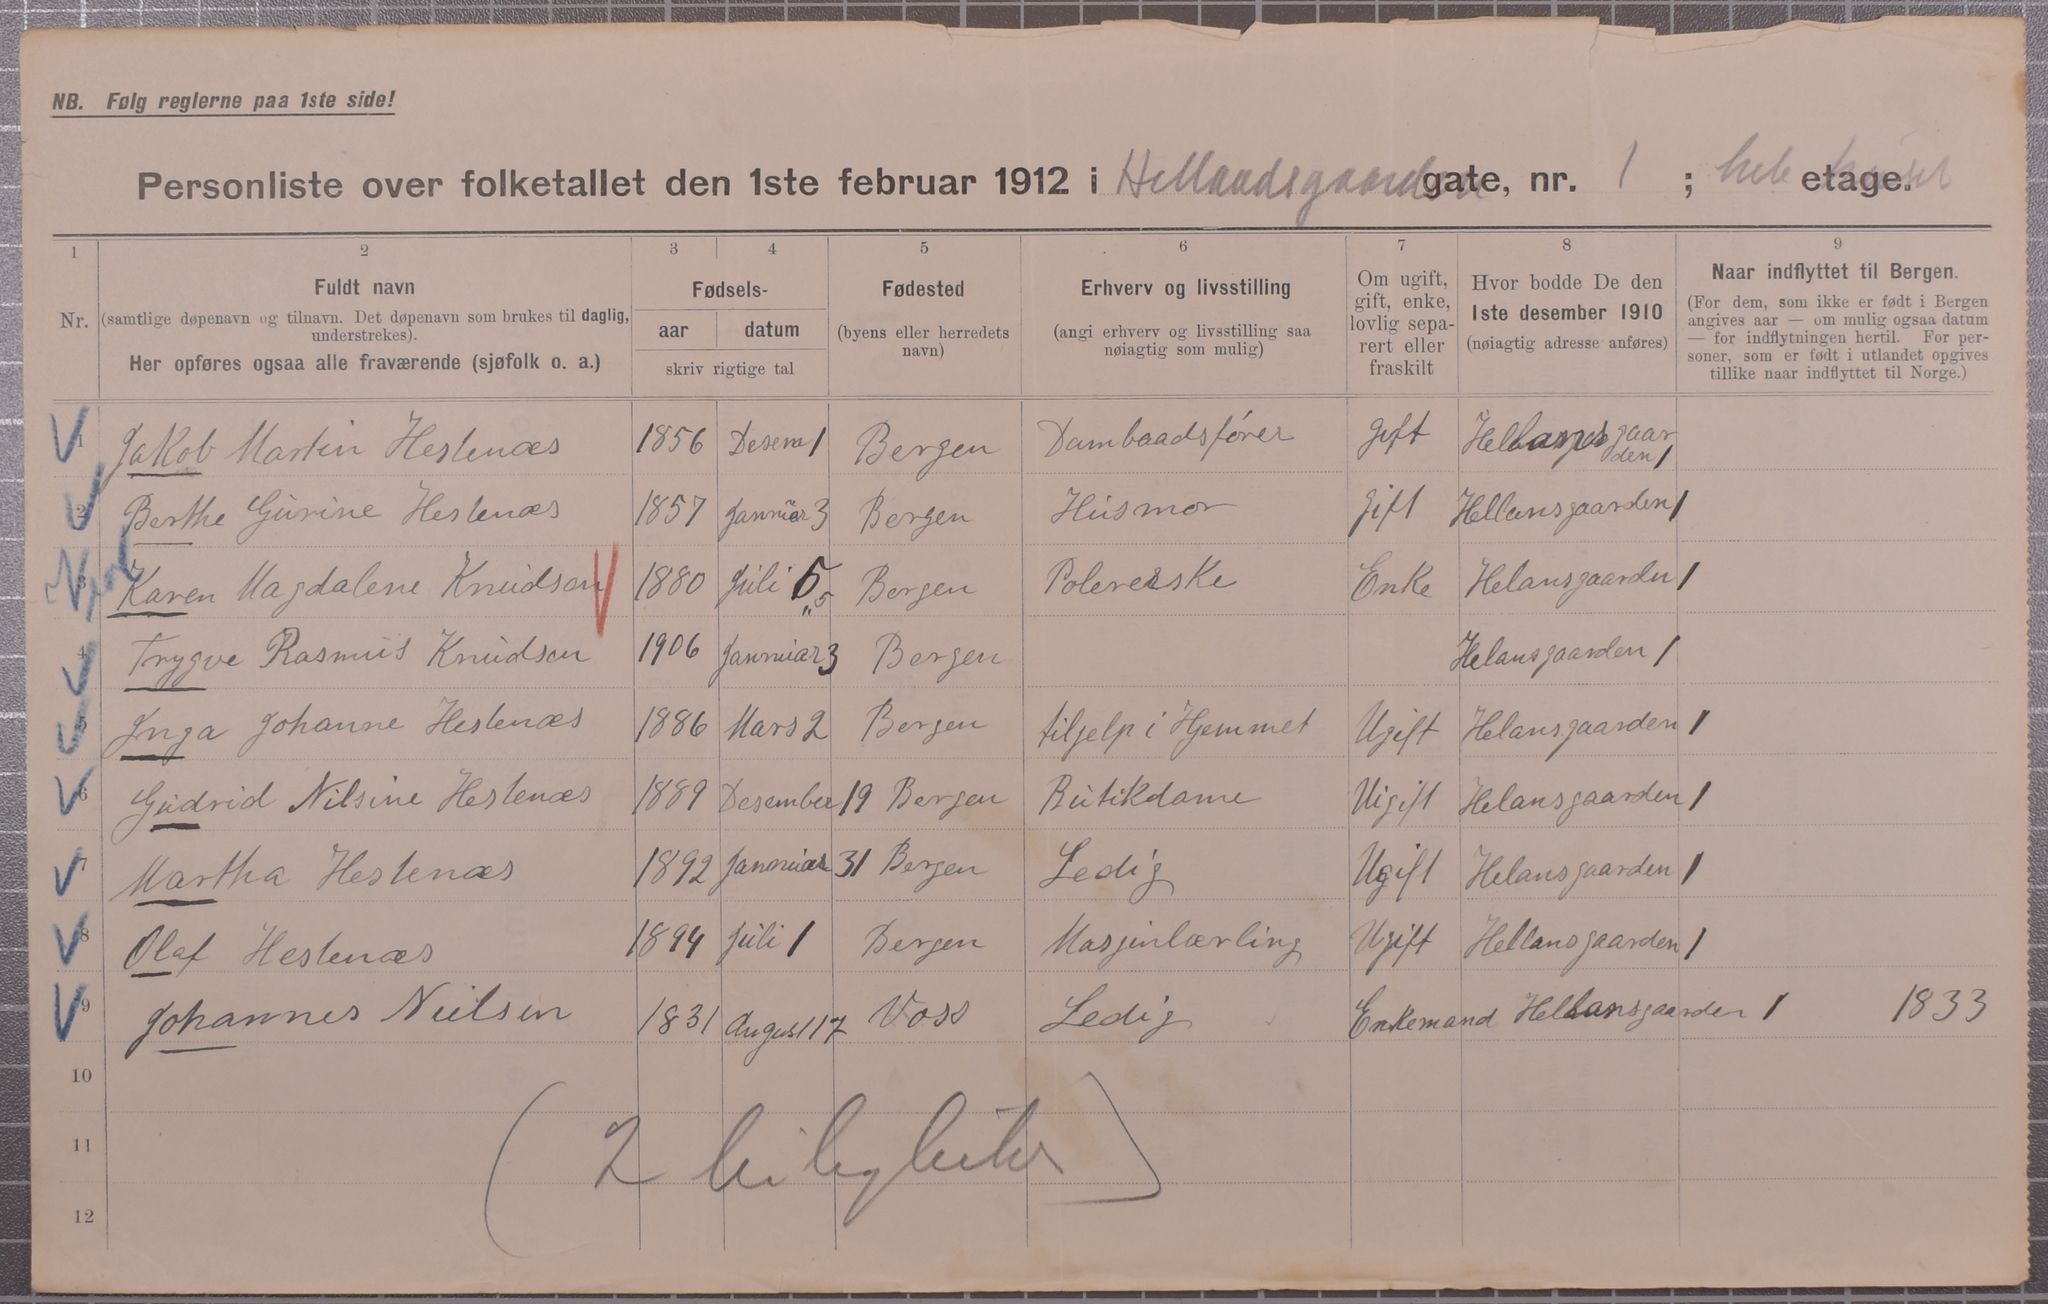 NB. Følg reglerne paa 1ste side!
Personliste over folketallet den 1ste februar 1912 i Hellandsgaarden gate, nr. 1 ; hele huset etage.
1 2 3 4 5 6 7 8 9
Nr.
Fuldt navn
(samtlige døpenavn og tilnavn. Det døpenavn som brukes til daglig, understrekes).
Her opføres ogsaa alle fraværende (sjøfolk o. a.)
Fødsels-
aar datum
skriv rigtige tal
Fødested
(byens eller herredets navn)
Erhverv og livsstilling
(angi erhverv og livsstilling saa nøiagtig som mulig)
Om ugift, gift, enke, lovlig sepa-rert eller fraskilt
Hvor bodde De den
1ste desember 1910
(nøiagtig adresse anføres)
Naar indflyttet til Bergen.
(For dem, som ikke er født i Bergen angives aar — om mulig ogsaa datum — for indflytningen hertil. For per-soner, som er født i utlandet opgives tillike naar indflyttet til Norge.)
1 Jakob Martin Hestenæs 1856 Desem 1 Bergen Dambaadsfører gift Hellansgaarden 1
2 Berthe Gurine Hestenæs 1857 Januar 3 Bergen Husmor gift Hellansgaarden 1
3 Karen Magdalene Knudsen 1880 Juli 5 "5 Bergen Polererske Enke Helansgaarden 1
4 Trygve Rasmus Knudsen 1906 Januar 3 Bergen Helansgaarden 1
5 Inga Johanne Hestenæs 1886 Mars 2 Bergen tiljelp i Hjemmet Ugift Helansgaarden 1
6 Gudrid Nilsine Hestenæs 1889 Desember 19 Bergen Butikdame Uigift Helansgaarden 1
7 Martha Hestenæs 1892 Januar 31 Bergen Ledig Ugift Helansgaarden 1
8 Olaf Hestenæs 1894 Juli 1 Bergen Masjinlærling Ugift Hellansgaarden 1
9 Johannes Nielsen 1831 August 17 Voss Ledig Enkemand Hellansgaarden 1 1833
10
11
12
(2 leiligheter)